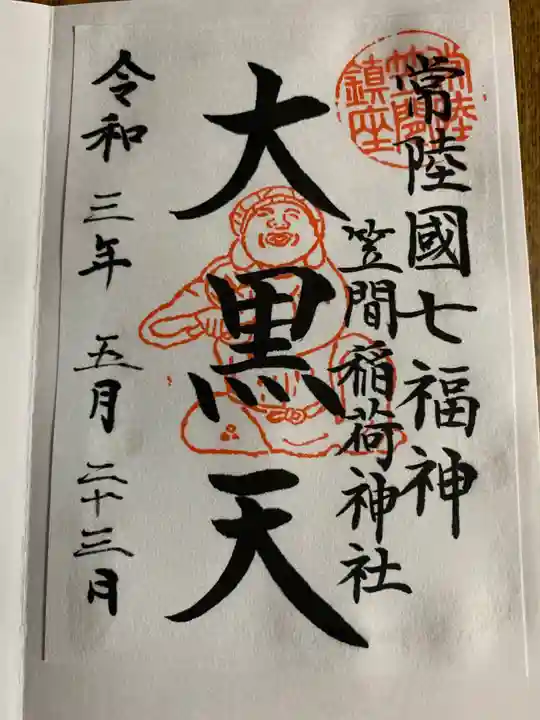 常陸國七福神
笠間稲荷神社
大黒天
令和三年 五月二十三月
常陸
笠間
鎮座